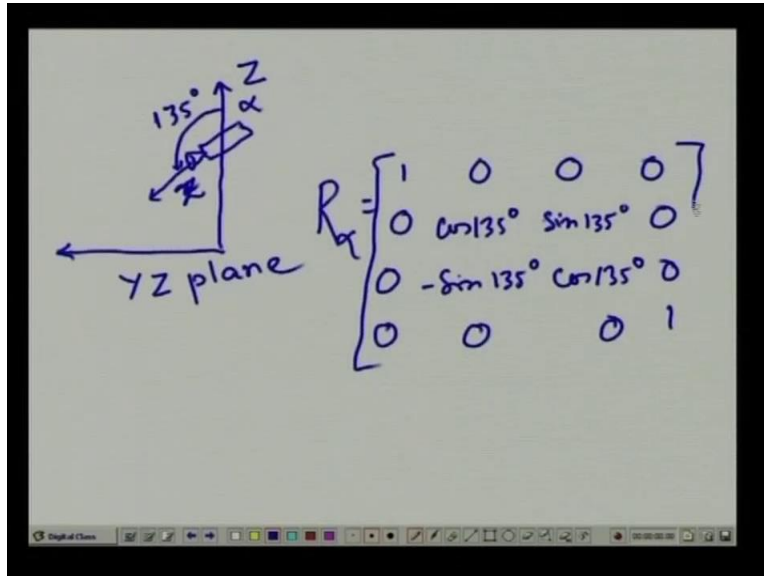 Z
135°
α
YZ plane
R_α = [ 1 0 0 0
0 cos135° sin135° 0
0 -sin135° cos135° 0
0 0 0 1 ]
Digital Class
00:00:00.00